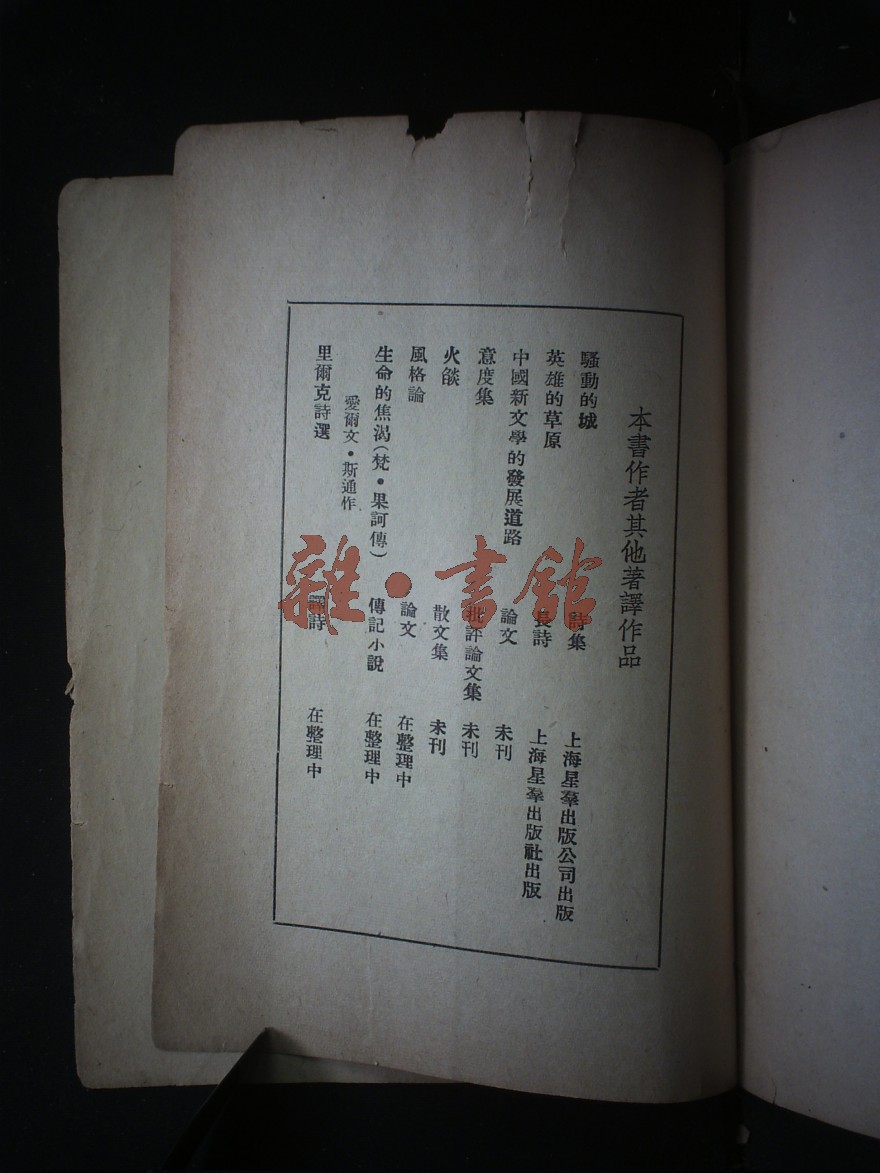 本書作者其他著譯作品
騷動的城 詩集 上海星羣出版公司出版
英雄的草原 長詩 上海星羣出版社出版
中國新文學的發展道路 論文 未刊
意度集 批評論文集 未刊
火燄 散文集 未刊
風格論 論文 在整理中
生命的焦渴(梵•果訶傳) 傳記小說 在整理中
愛爾文•斯通作
里爾克詩選 譯詩 在整理中
雜•書館